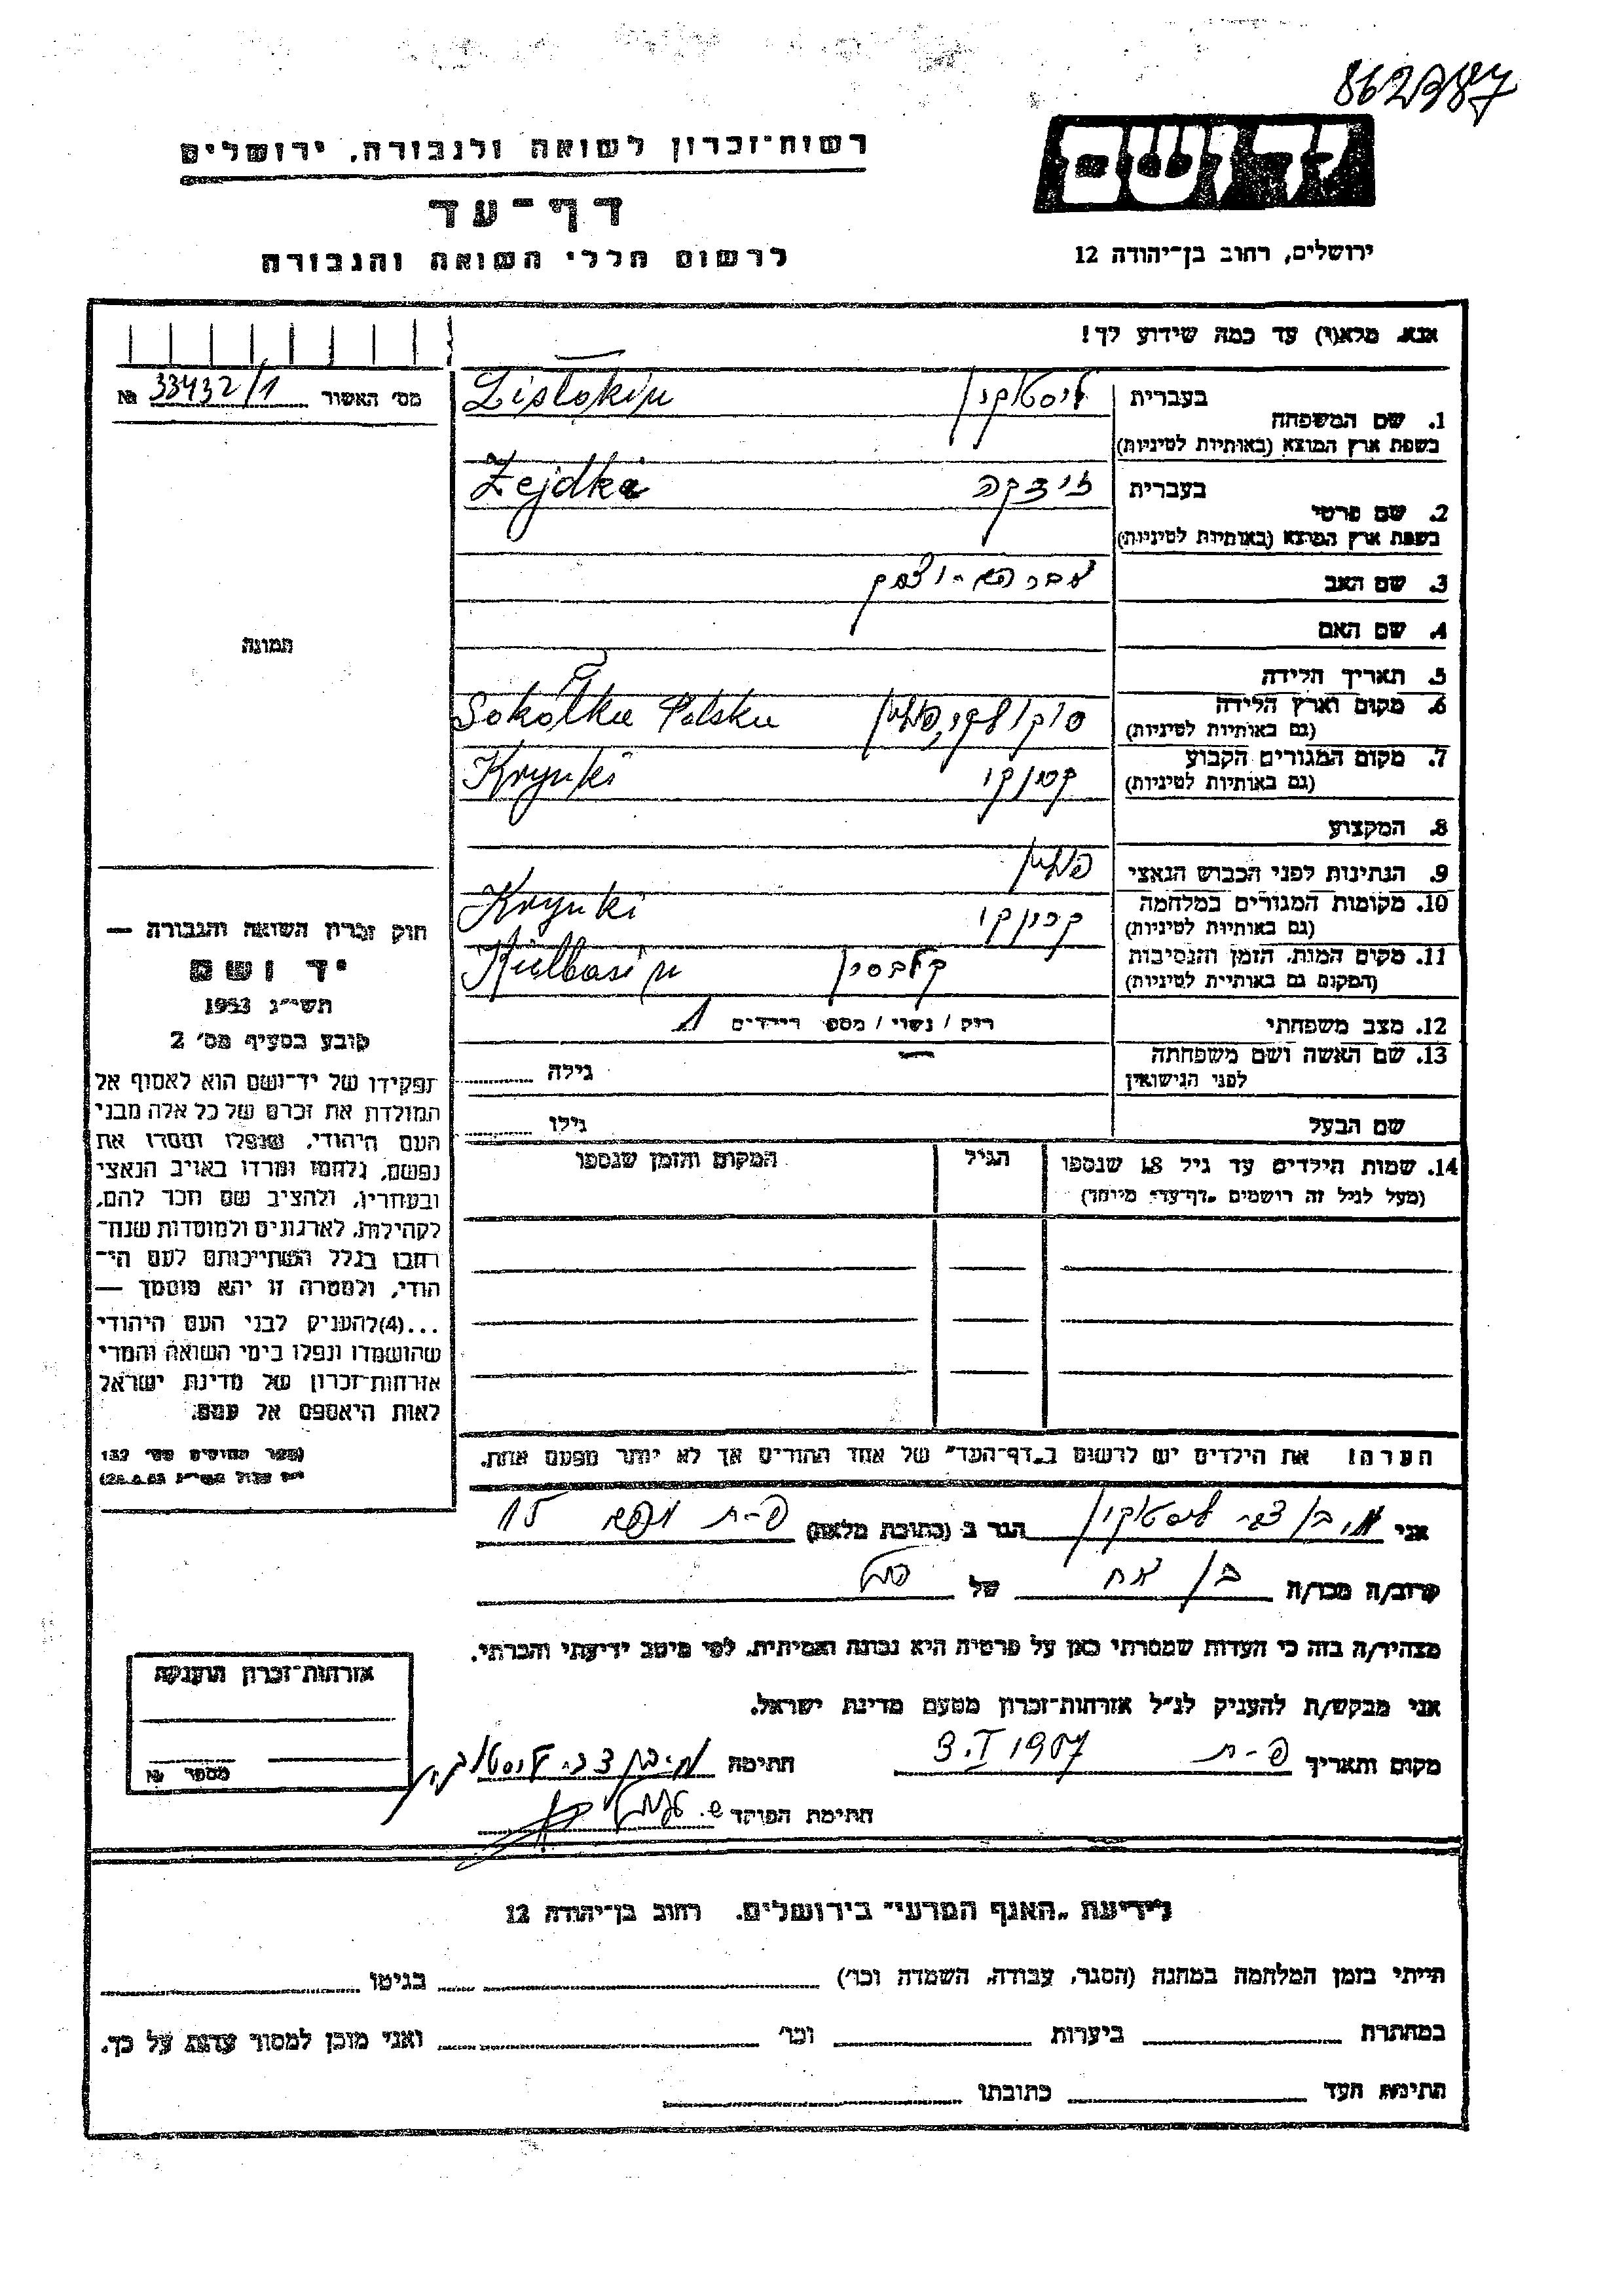 862387
יד ושם
רשות־זכרון לשואה ולגבורה, ירושלים
דף־עד
לרשום חללי השואה והגבורה
ירושלים, רחוב בן־יהודה 12
אנא, מלא(י) עד כמה שידוע לך!
מס׳ האשור 33432/1 №
תמונה
חוק זכרון השואה והגבורה —
יד ושם
תשי״ג 1953
קובע בסעיף מס׳ 2
תפקידו של יד־ושם הוא לאסוף אל
המולדת את זכרם של כל אלה מבני
העם היהודי, שנפלו ומסרו את
נפשם, נלחמו ומרדו באויב הנאצי
ובעוזריו, ולהציב שם וזכר להם,
לקהילות, לארגונים ולמוסדות שנח־
רבו בגלל השתייכותם לעם הי־
הודי, ולמטרה זו יהא מוסמך —
...(4) להעניק לבני העם היהודי
שהושמדו ונפלו בימי השואה והמרי
אזרחות־זכרון של מדינת ישראל
לאות היאספם אל עמם.
(ספר החוקים מס׳ 132
1. שם המשפחה בעברית ליסטוקין
בשפת ארץ המוצא (באותיות לטיניות) Listokin
2. שם פרטי בעברית זיידקה
בשפת ארץ המוצא (באותיות לטיניות) Zejdka
3. שם האב אברהם - יצחק
4. שם האם
5. תאריך הלידה
6. מקום וארץ הלידה סוקולקה, פולין Sokółka Polska
(גם באותיות לטיניות)
7. מקום המגורים הקבוע קרינקי Krynki
(גם באותיות לטיניות)
8. המקצוע
9. הנתינות לפני הכבוש הנאצי פולין
10. מקומות המגורים במלחמה קרינקי Krynki
(גם באותיות לטיניות)
11. מקום המות, הזמן והנסיבות קלבסין Kielbasin
(המקום גם באותיות לטיניות)
12. מצב משפחתי רוק / נשוי / מספר הילדים
13. שם האשה ושם משפחתה גילה
לפני הנישואין
שם הבעל גילו
14. שמות הילדים עד גיל 18 שנספו הגיל המקום והזמן שנספו
(מעל לגיל זה רושמים „דף־עד״ מיוחד)
הערה: את הילדים יש לרשום ב„דף־העד״ של אחד ההורים אך לא יותר מפעם אחת.
אני בן צבי ליסטוקין הגר ב (כתובת מלאה) פ-ת 15
קרוב/ה מכר/ה בן אח של
מצהיר/ה בזה כי העדות שמסרתי כאן על פרטיה היא נכונה ואמיתית, לפי מיטב ידיעתי והכרתי.
אני מבקש/ת להעניק לנ״ל אזרחות־זכרון מטעם מדינת ישראל.
מקום ותאריך פ-ת 3.I 1957 חתימה צבי ליסטוקין
חתימת הפוקד
אזרחות־זכרון הוענקה
מספר №
לידיעת „האגף המדעי״ בירושלים, רחוב בן־יהודה 12
הייתי בזמן המלחמה במחנה (הסגר, עבודה, השמדה וכו׳) בגיטו
במחתרת ביערות וכו׳ ואני מוכן למסור עדות על כך.
חתימת העד כתובתו